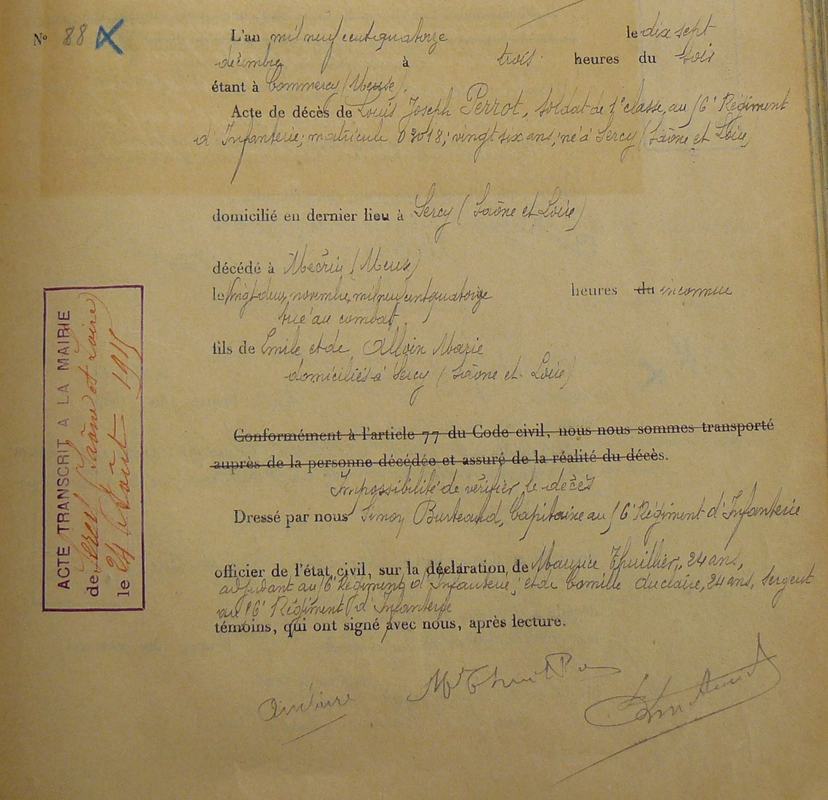 N° 88
L'an mil neuf cent quatorze le dix sept
décembre à trois heures du soir
étant à Commercy (Meuse).
Acte de décès de Louis Joseph Perrot, soldat de 1e classe, au 56e Régiment
d'Infanterie; matricule 03018; vingt six ans, né à Sercy (Saône et Loire)
domicilié en dernier lieu à Sercy (Saône et Loire)
décédé à Mécrin (Meuse)
le vingt deux novembre, mil neuf cent quatorze heures du inconnue
tué au combat
fils de Emile et de Alloin Marie
domiciliés à Sercy (Saône et Loire)
Conformément à l'article 77 du Code civil, nous nous sommes transporté
auprès de la personne décédée et assuré de la réalité du décès.
Impossibilité de vérifier le décès
Dressé par nous Simon, Capitaine au 56e Régiment d'Infanterie
officier de l'état civil, sur la déclaration de Maurice Thuillier, 24 ans,
adjudant au 56e Régiment d'Infanterie; et de Camille Duclaire, 24 ans, Sergent
au 56e Régiment d'Infanterie
témoins, qui ont signé avec nous, après lecture.
ACTE TRANSCRIT A LA MAIRIE
de Sercy (Saône et Loire)
le 24 Août 1915